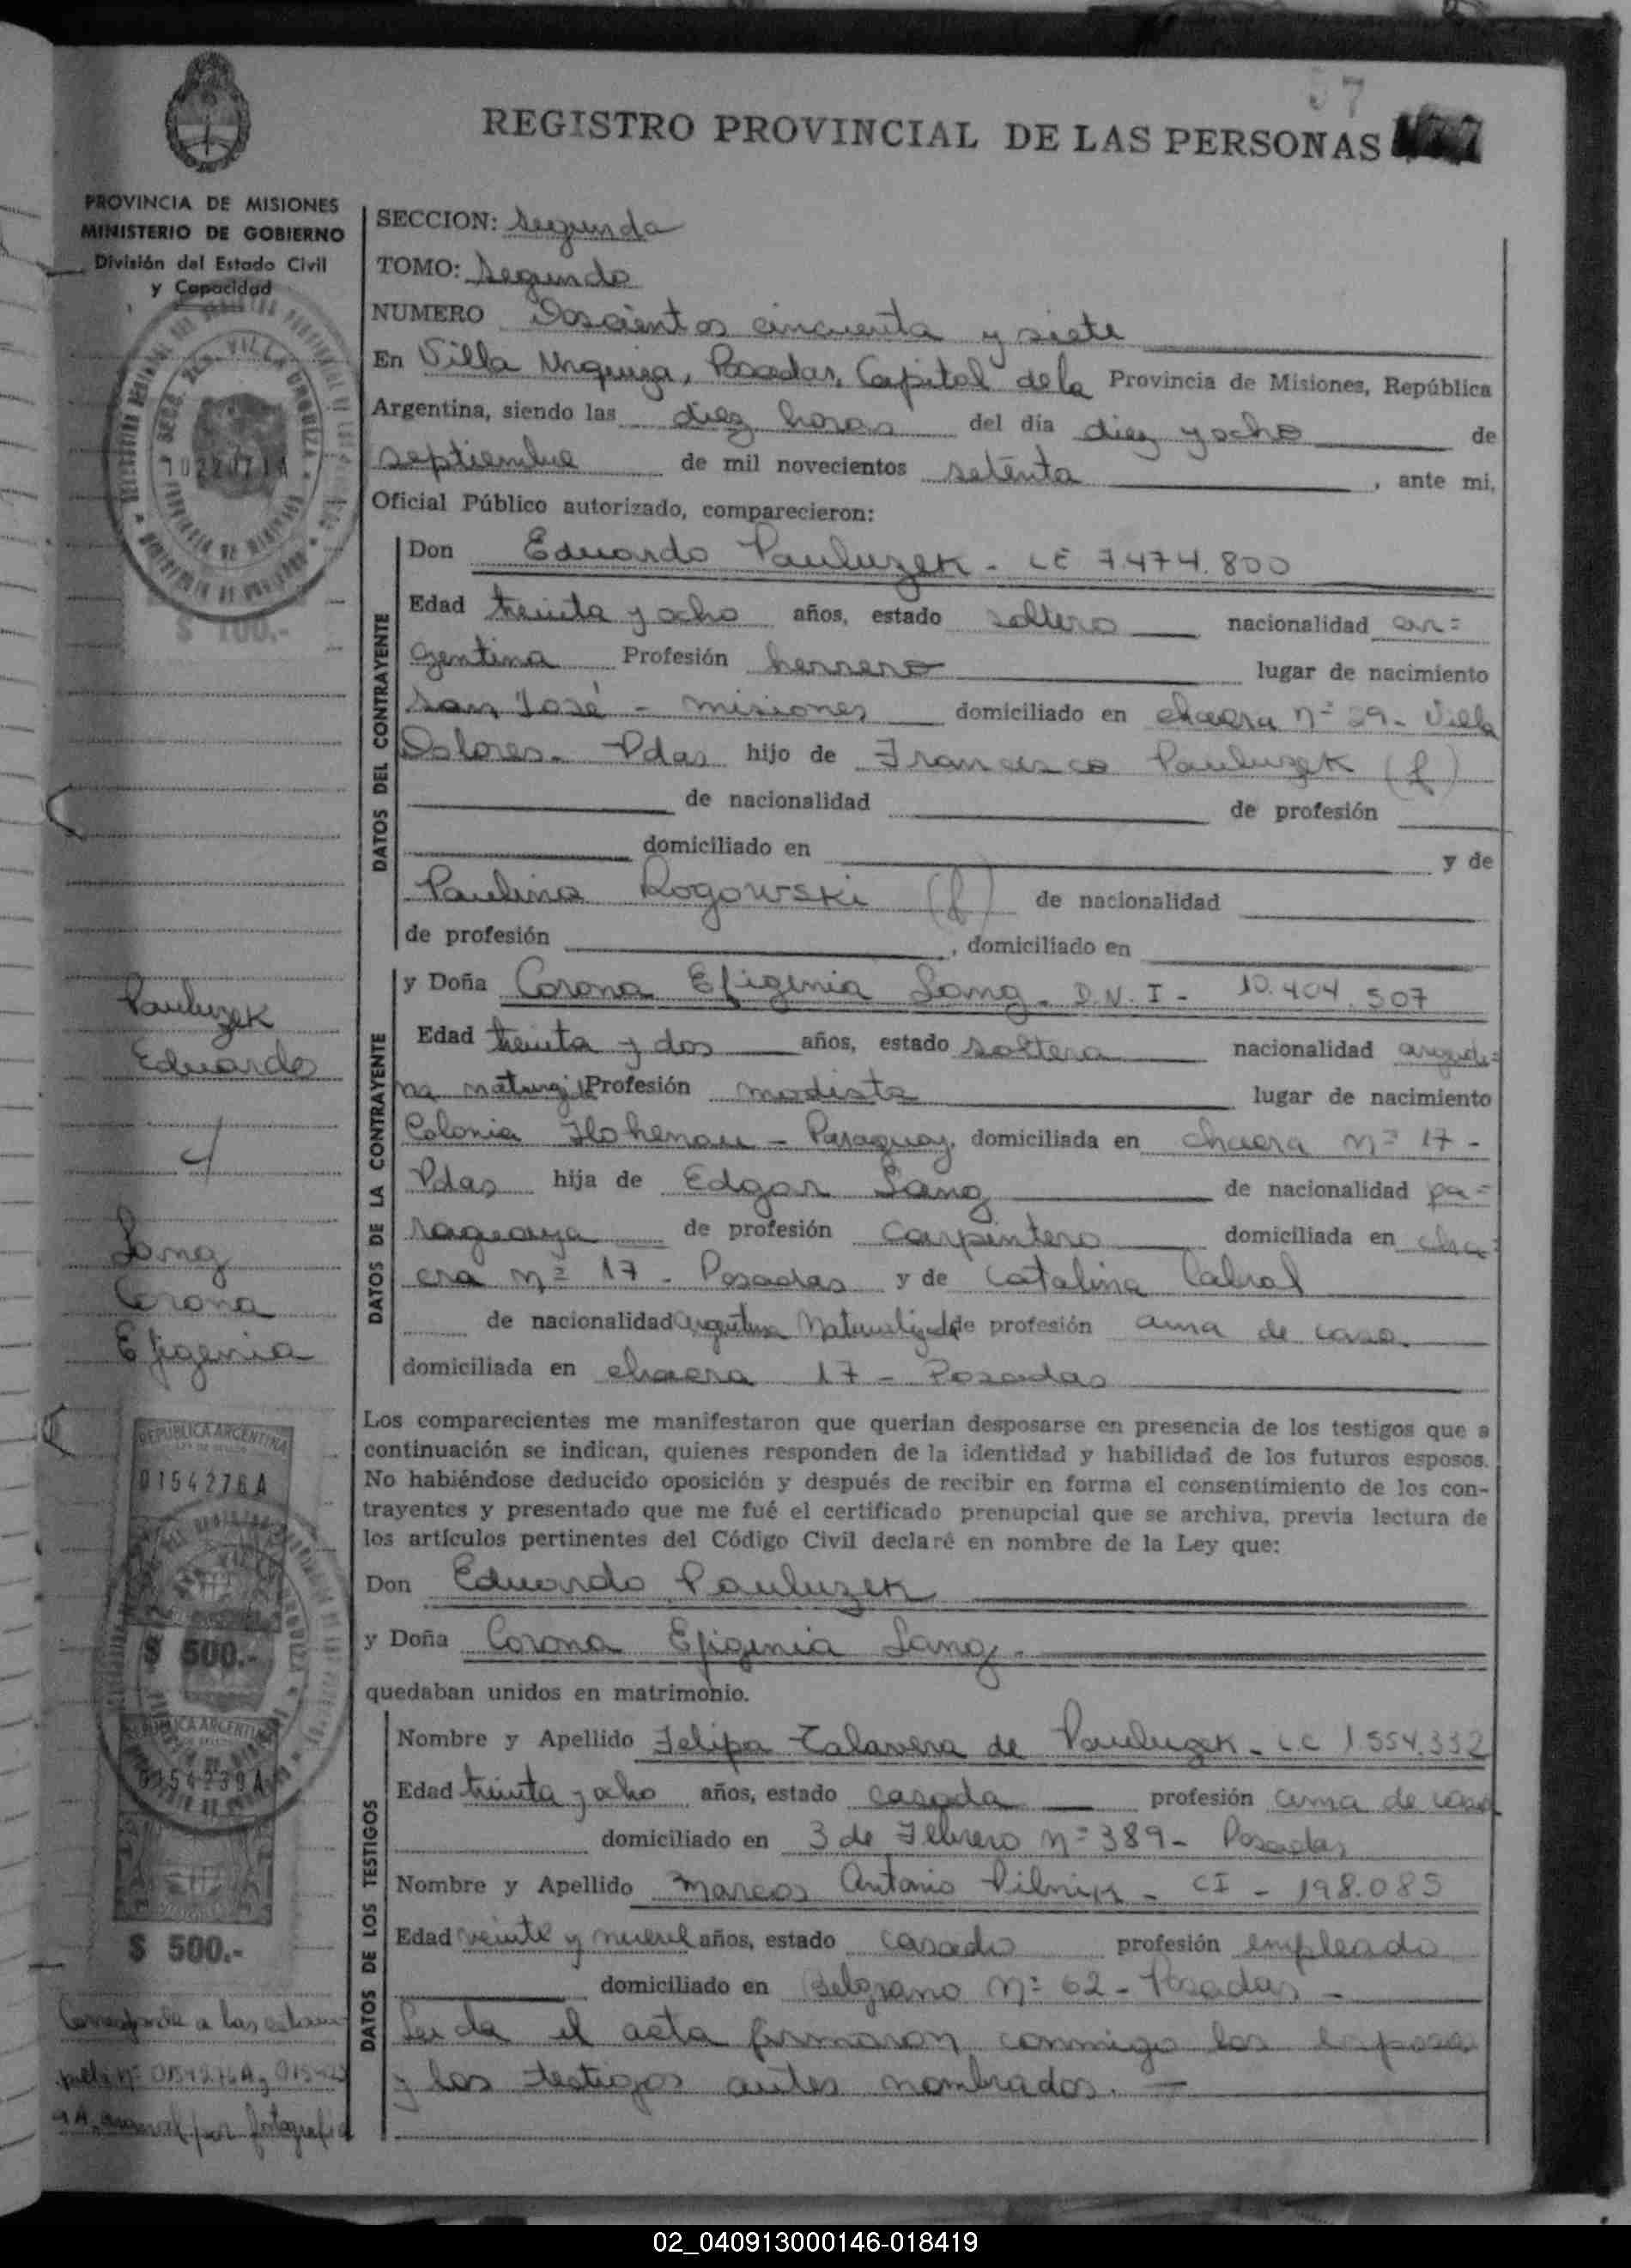 57
REGISTRO PROVINCIAL DE LAS PERSONAS
PROVINCIA DE MISIONES
MINISTERIO DE GOBIERNO
División del Estado Civil
y Capacidad
$ 100.-
SECCION: Segunda
TOMO: Segundo
NUMERO Doscientos cincuenta y siete
En Villa Urquiza, Posadas, Capital de la Provincia de Misiones, República
Argentina, siendo las diez horas del día diez y ocho de
septiembre de mil novecientos setenta, ante mi,
Oficial Público autorizado, comparecieron:
DATOS DEL CONTRAYENTE
Don Eduardo Pauluzek - LE 7.474.800
Edad treinta y ocho años, estado soltero nacionalidad ar=
gentina Profesión herrero lugar de nacimiento
San José - misiones domiciliado en chacra nº 29 - Villa
Dolores - Pdas hijo de Francisco Pauluzek (f)
de nacionalidad de profesión
domiciliado en y de
Paulina Rogowski (f) de nacionalidad
de profesión , domiciliado en
DATOS DE LA CONTRAYENTE
y Doña Corona Efigenia Lang - D.N.I - 10.404.507
Edad treinta y dos años, estado soltera nacionalidad argenti=
na Profesión modista lugar de nacimiento
Colonia Hohenau - Paraguay, domiciliada en chacra nº 17 -
Pdas hija de Edgar Lang de nacionalidad pa=
raguaya de profesión carpintero domiciliada en cha=
cra nº 17 - Posadas y de Catalina Cabral
de nacionalidad argentina Naturalizada de profesión ama de casa
domiciliada en chacra 17 - Posadas
Pauluzek
Eduardo
y
Lang
Corona
Efigenia
Los comparecientes me manifestaron que querían desposarse en presencia de los testigos que a
continuación se indican, quienes responden de la identidad y habilidad de los futuros esposos.
No habiéndose deducido oposición y después de recibir en forma el consentimiento de los con-
trayentes y presentado que me fué el certificado prenupcial que se archiva, previa lectura de
los artículos pertinentes del Código Civil declaré en nombre de la Ley que:
Don Eduardo Pauluzek
y Doña Corona Efigenia Lang.
quedaban unidos en matrimonio.
REPUBLICA ARGENTINA
0154276A
$ 500.-
REPUBLICA ARGENTINA
0154239A
$ 500.-
DATOS DE LOS TESTIGOS
Nombre y Apellido Felipa Talavera de Pauluzek - L.C 1.554.332
Edad treinta y ocho años, estado casada profesión ama de casa
domiciliado en 3 de Febrero nº 389 - Posadas
Nombre y Apellido Marcos Antonio Pilnik - CI - 198.085
Edad veinte y nueve años, estado casado profesión empleado
domiciliado en Belgrano nº 62 - Posadas -
Leida el acta firmaron conmigo los esposos
y los testigos antes nombrados. -
Corresponde a las
por fotografia
02_040913000146-018419